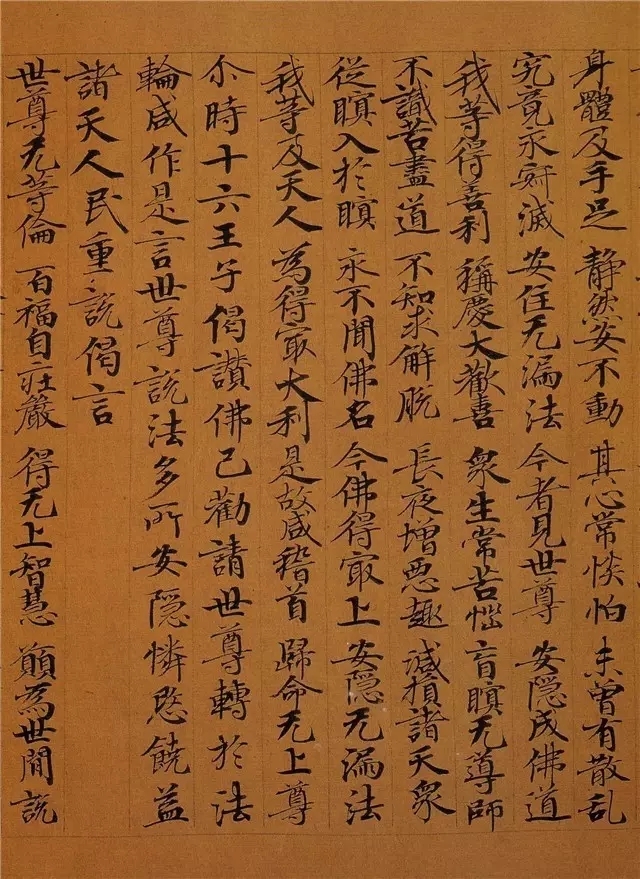 身體及手足 静然安不動 其心常惔怕 未曾有散乱
究竟永寂滅 安住无漏法 今者見世尊 安隠成佛道
我等得喜利 稱慶大歡喜 衆生常苦惱 盲瞑无導師
不識苦盡道 不知求解脱 長夜增惡趣 減損諸天衆
從瞑入於瞑 永不聞佛名 今佛得㝡上 安隠无漏法
我等及天人 為得㝡大利 是故咸稽首 歸命无上尊
尒時十六王子偈讃佛已勸請世尊轉於法
輪咸作是言世尊說法多所安隠憐愍饒益
諸天人民重說偈言
世尊无等倫 百福自莊嚴 得无上智慧 願為世間說